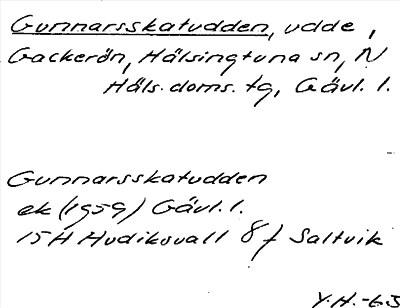 Gunnarsskatudden, udde,
Gackerön, Hälsingtuna sn, N
Häls. doms. tg, Gävl. l.
Gunnarsskatudden
ek (1959) Gävl. l.
15H Hudiksvall 8f Saltvik
Y.H. -63